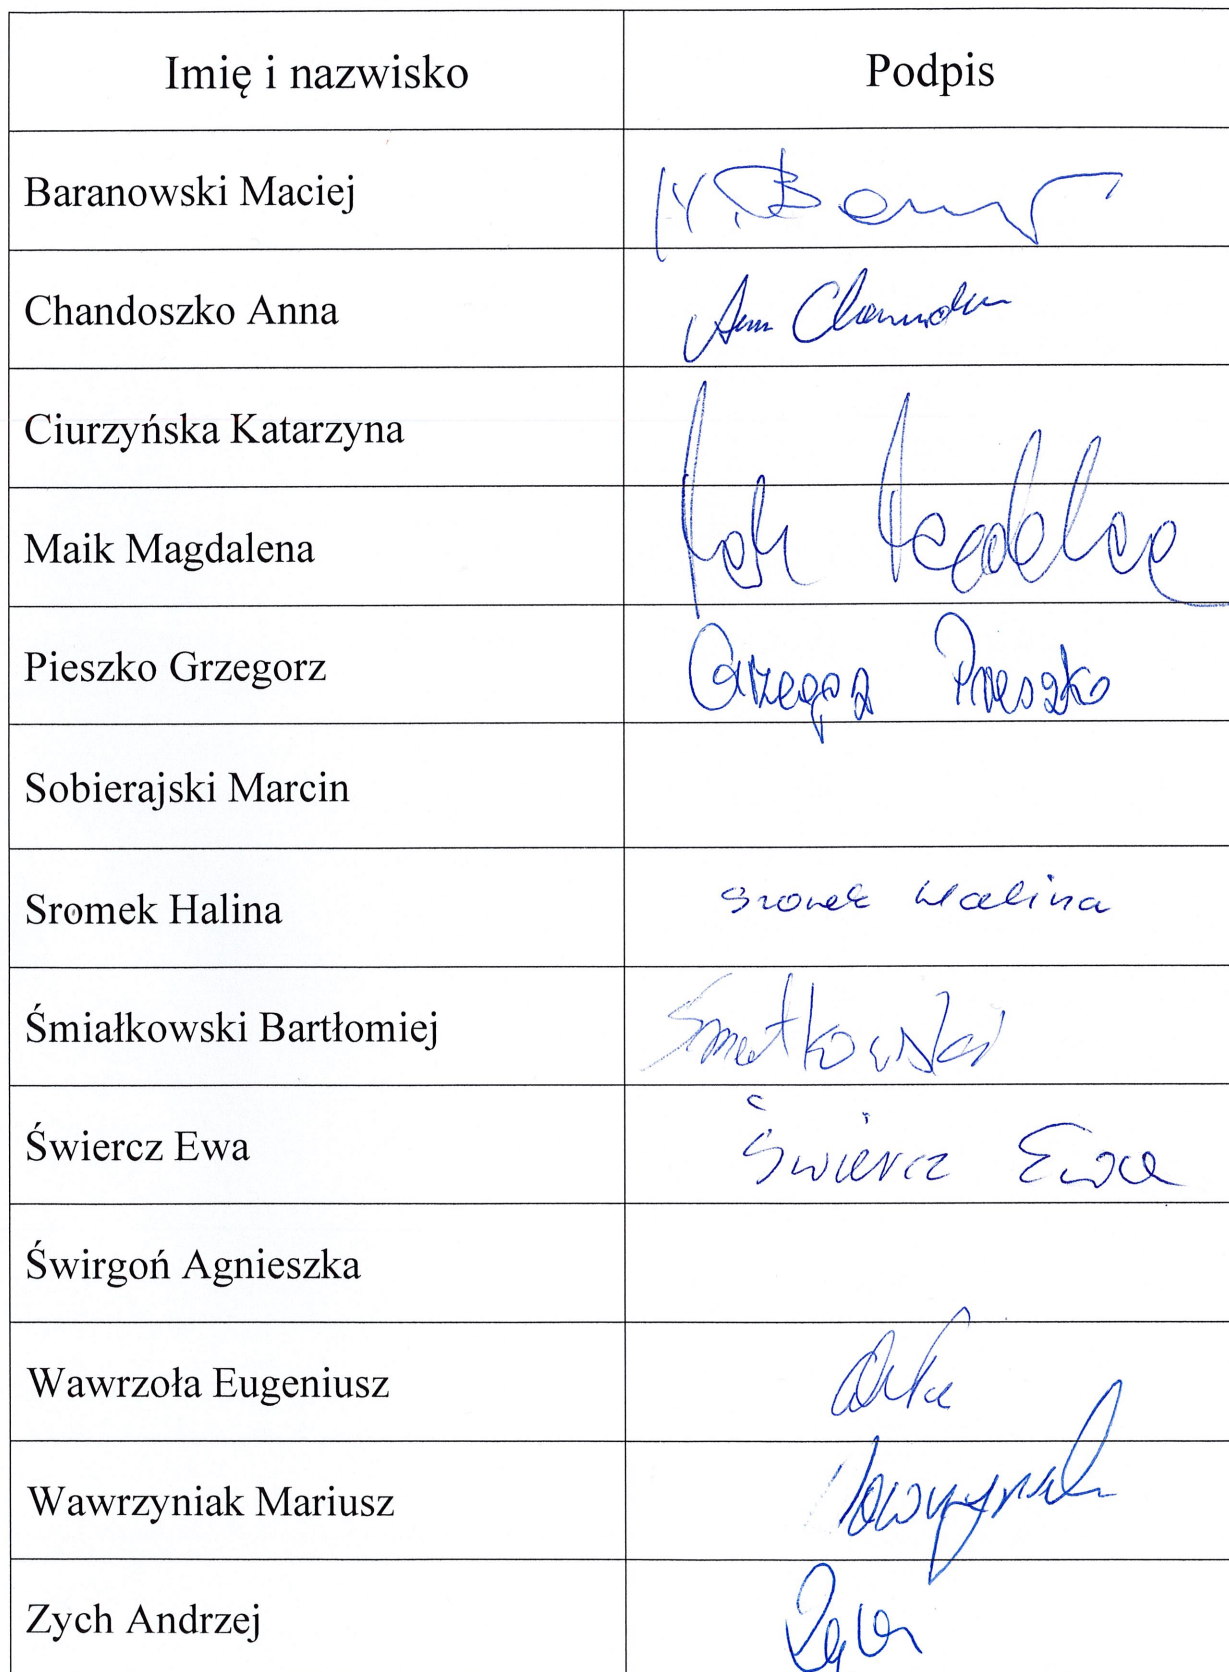 Imię i nazwisko Podpis
Baranowski Maciej
Chandoszko Anna
Ciurzyńska Katarzyna
Maik Magdalena
Pieszko Grzegorz Grzegorz Pieszko
Sobierajski Marcin
Sromek Halina Sromek Halina
Śmiałkowski Bartłomiej
Świercz Ewa Świercz Ewa
Świrgoń Agnieszka
Wawrzoła Eugeniusz
Wawrzyniak Mariusz
Zych Andrzej